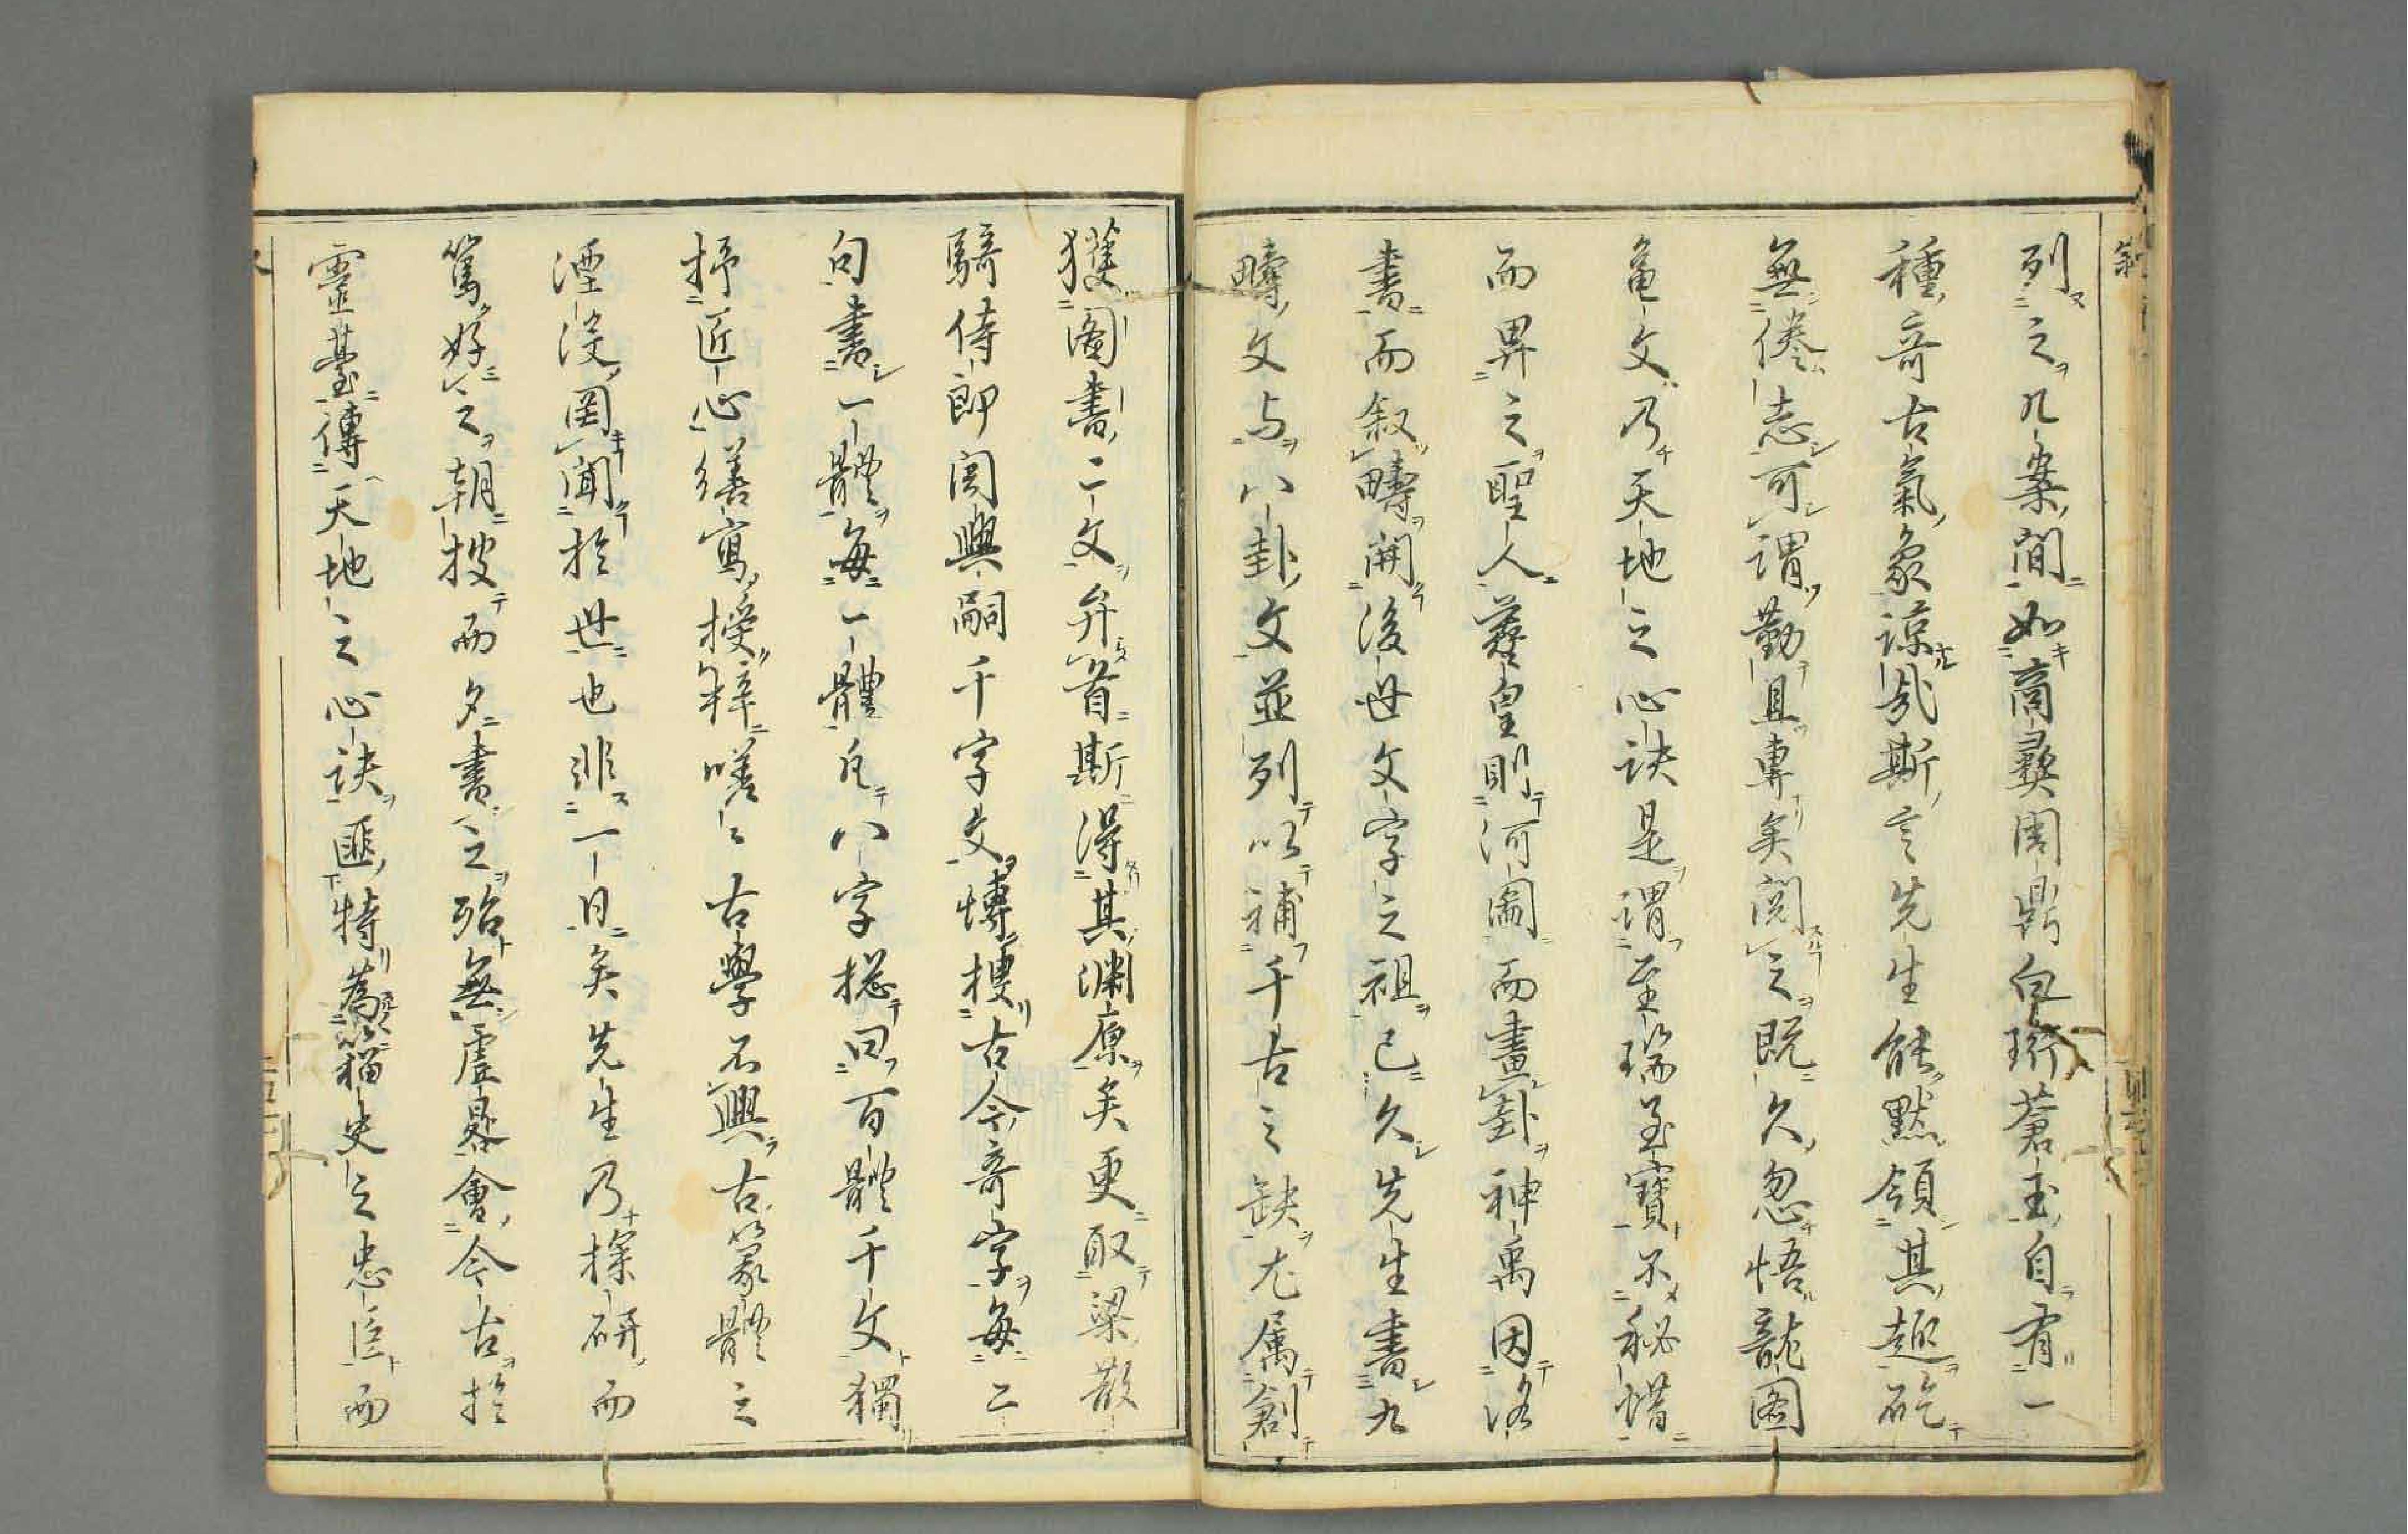 列之几案間如商彝周鼎白珩蒼玉自有一
種奇古氣象諒哉斯言先生能默領其趣矻
無倦志可謂勤且專矣閲之既久忽悟龍図
亀文乃天地之心訣是謂至瑞至寶不秘惜
而畀之聖人羲皇則河圖而畫卦神禹因洛
書而叙疇開後世文字之祖已久先生書九
疇文与八卦文並列以補千古之缺尤属創
獲圖書二文弁首斯得其淵原矣更取梁散
騎侍郎周興嗣千字文博搜古今奇字每二
句書一體每一體凡八字揔曰百體千文獨
抒匠心繕寫授梓嗟〻古學不興古篆體之
湮没罔聞於世也非一日矣先生乃探研而
篤好之朝搜而夕書之殆無虚晷會今古於
靈臺傳天地之心訣匪特為籀史之忠臣而